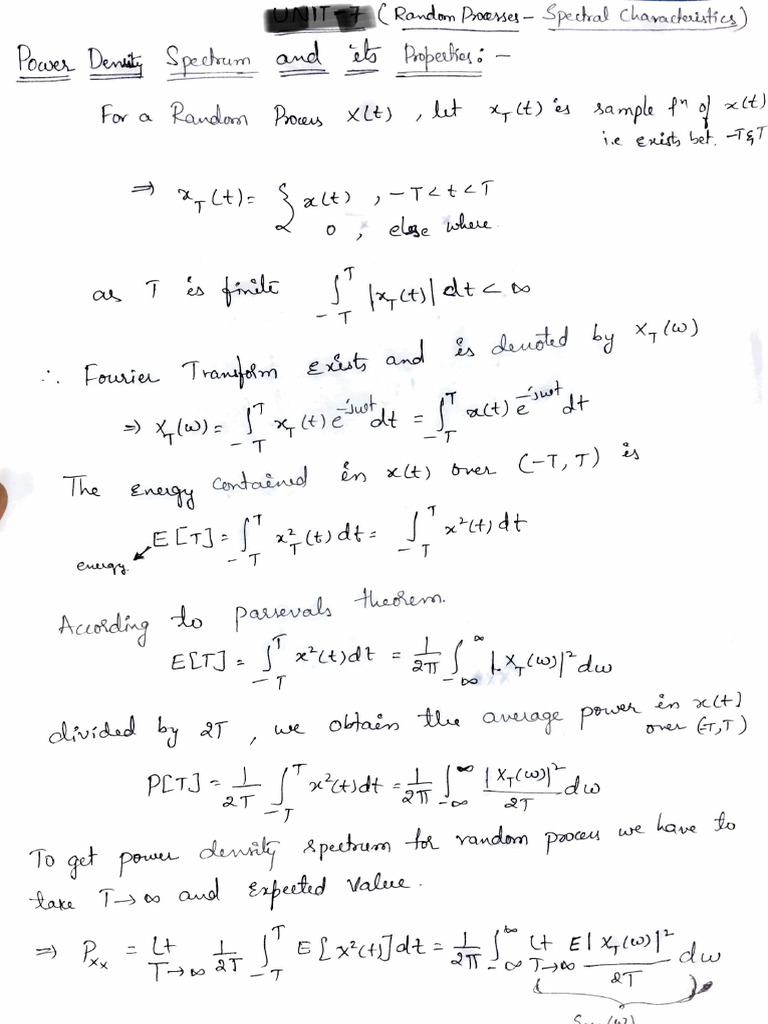 UNIT-7 (Random Processes - Spectral Characteristics)
Power Density Spectrum and its Properties:-
For a Random Process X(t), let x_T(t) is sample fⁿ of x(t)
i.e exists bet. -T & T
⇒ x_T(t) = { x(t), -T<t<T
0, else where
as T is finite ∫_{-T}^{T} |x_T(t)| dt < ∞
∴ Fourier Transform exists and is denoted by X_T(ω)
⇒ X_T(ω) = ∫_{-T}^{T} x_T(t) e^{-jωt} dt = ∫_{-T}^{T} x(t) e^{-jωt} dt
The energy contained in x(t) over (-T, T) is
E[T] = ∫_{-T}^{T} x_T²(t) dt = ∫_{-T}^{T} x²(t) dt
energy.
According to parsevals theorem.
E[T] = ∫_{-T}^{T} x²(t) dt = 1/2π ∫_{-∞}^{∞} |X_T(ω)|² dω
divided by 2T, we obtain the average power in x(t)
over (-T,T)
P[T] = 1/2T ∫_{-T}^{T} x²(t) dt = 1/2π ∫_{-∞}^{∞} |X_T(ω)|²/2T dω
To get power density spectrum for random process we have to
take T→∞ and Expected value.
⇒ P_xx = Lt_{T→∞} 1/2T ∫_{-T}^{T} E[x²(t)] dt = 1/2π ∫_{-∞}^{∞} Lt_{T→∞} E|X_T(ω)|²/2T dω